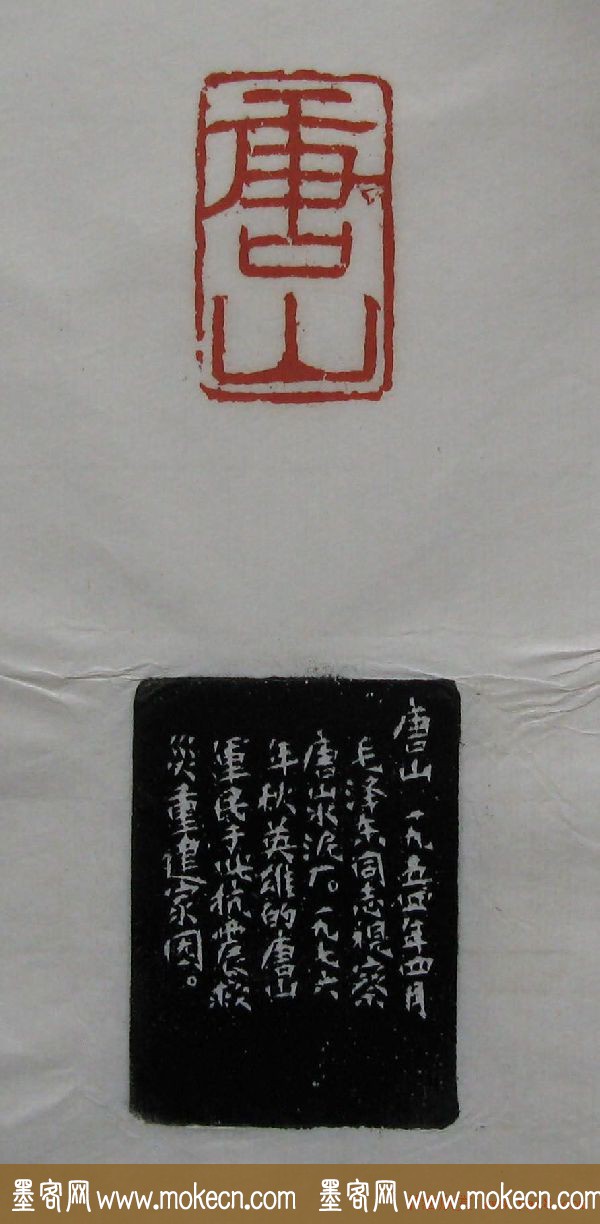 唐山
唐山 一九五四年四月
毛泽东同志視察
唐山水泥厂。一九七六
年秋英雄的唐山
軍民于此抗震救
災重建家园。
墨客网 www.mokecn.com 墨客网 www.mokecn.com